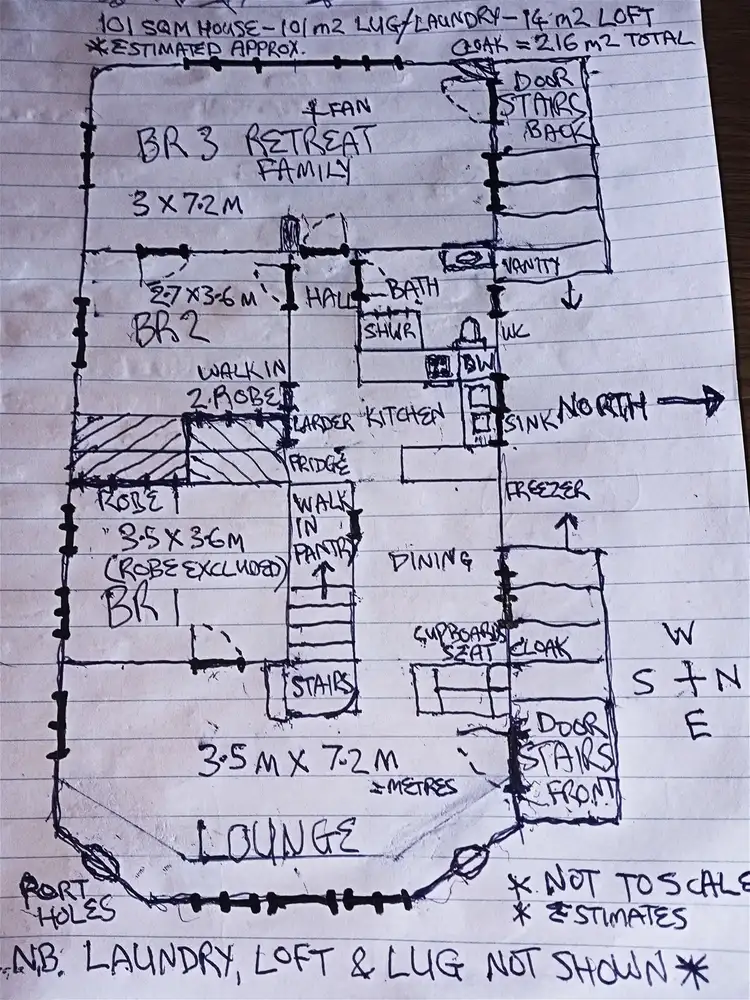 101 SQM HOUSE-101m2 LUG/LAUNDRY-14m2 LOFT
*ESTIMATED APPROX.
CLOAK = 216 m2 TOTAL
DOOR
STAIRS
BACK
FAN
BR 3 RETREAT
FAMILY
3 X 7.2 M
VANITY
2.7 X 3.6 M
HALL
BATH
BR 2
SHWR
WC
WALK IN
2. ROBE
DW
LARDER
KITCHEN
SINK
NORTH
FRIDGE
FREEZER
ROBE 1
WALK
IN
PANTRY
3.5 X 3.6 M
(ROBE EXCLUDED)
DINING
BR 1
CUPBOARDS
SEAT
CLOAK
W
S N
E
STAIRS
DOOR
STAIRS
FRONT
3.5 M X 7.2 M
± METRES
LOUNGE
PORT
HOLES
* NOT TO SCALE
* ESTIMATES
N.B. LAUNDRY, LOFT & LUG NOT SHOWN *